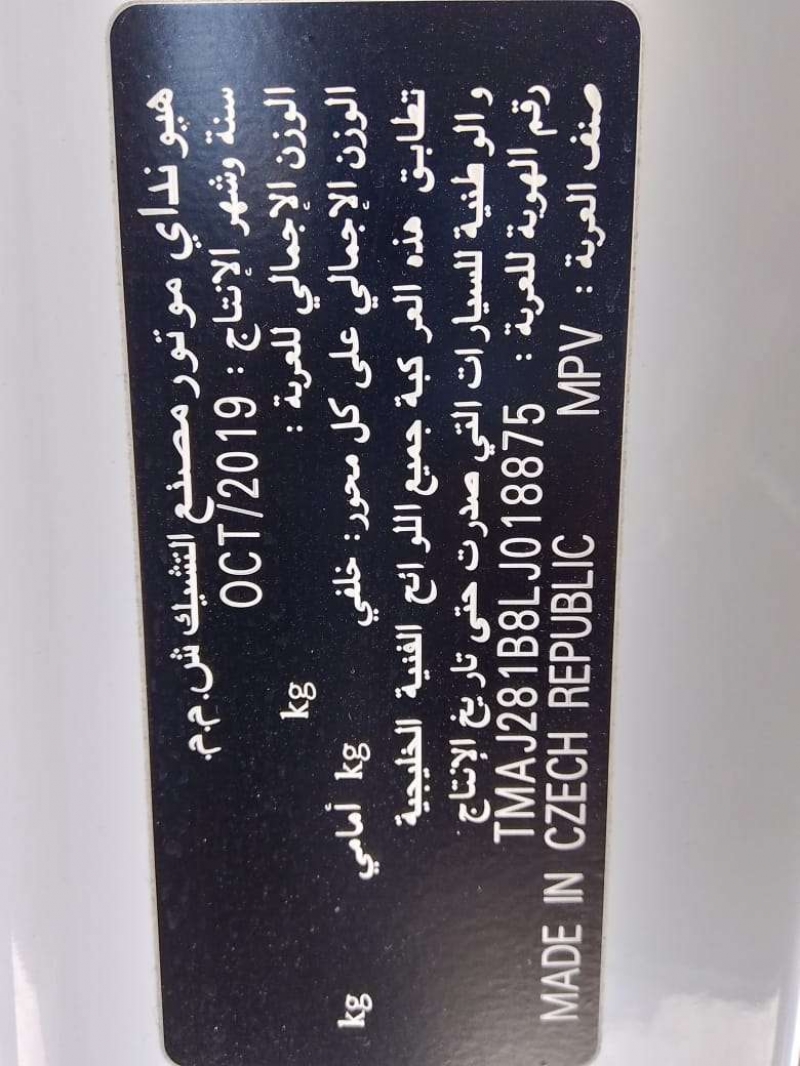 هيونداي موتور مصنع التشيك ش.م.م.
سنة وشهر الإنتاج : OCT/2019
الوزن الإجمالي للعربة : kg
الوزن الإجمالي على كل محور: خلفي kg أمامي kg
تطابق هذه العركبة جميع اللوائح الفنية الخليجية
والوطنية للسيارات التي صدرت حتى تاريخ الإنتاج
رقم الهوية للعربة : TMAJ281B8LJ018875
صنف العربة : MPV MADE IN CZECH REPUBLIC